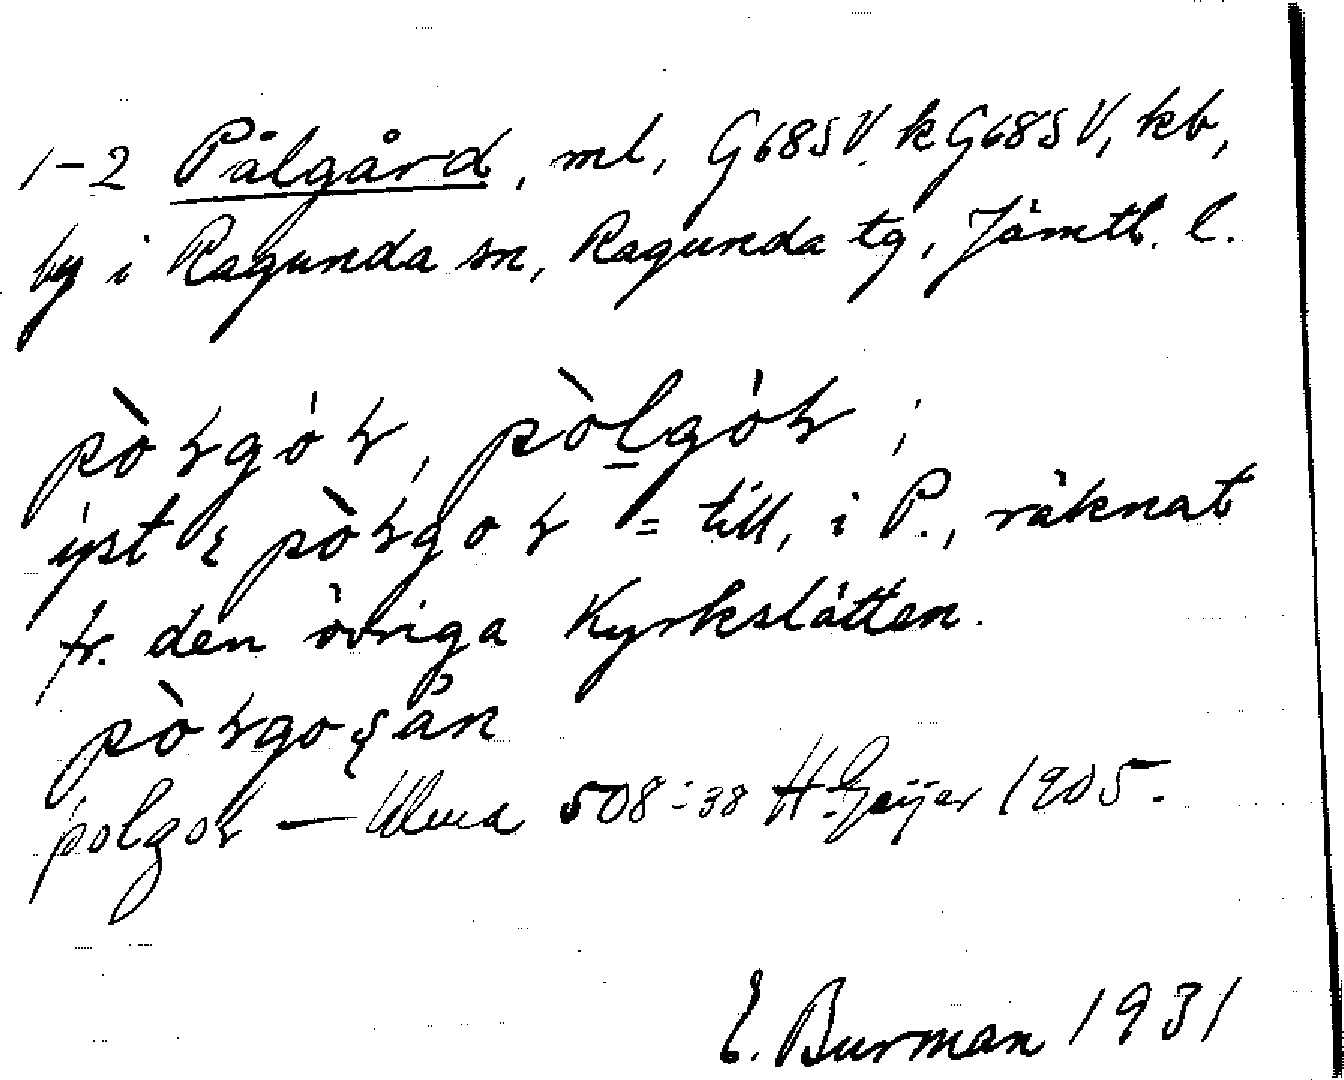 1-2 Pålgård, ml, G68SV. kG68SV, kb,
by i Ragunda sn, Ragunda tg, Jämtl. l.
pòɽgóɽ, pòlgóɽ ;
pòɽgoɽ = till, i P., räknat
fr. den övriga Kyrkslätten.
pòɽgo
polgoɽ — Ulma 508:38 H. Geijer 1905.
E. Burman 1931